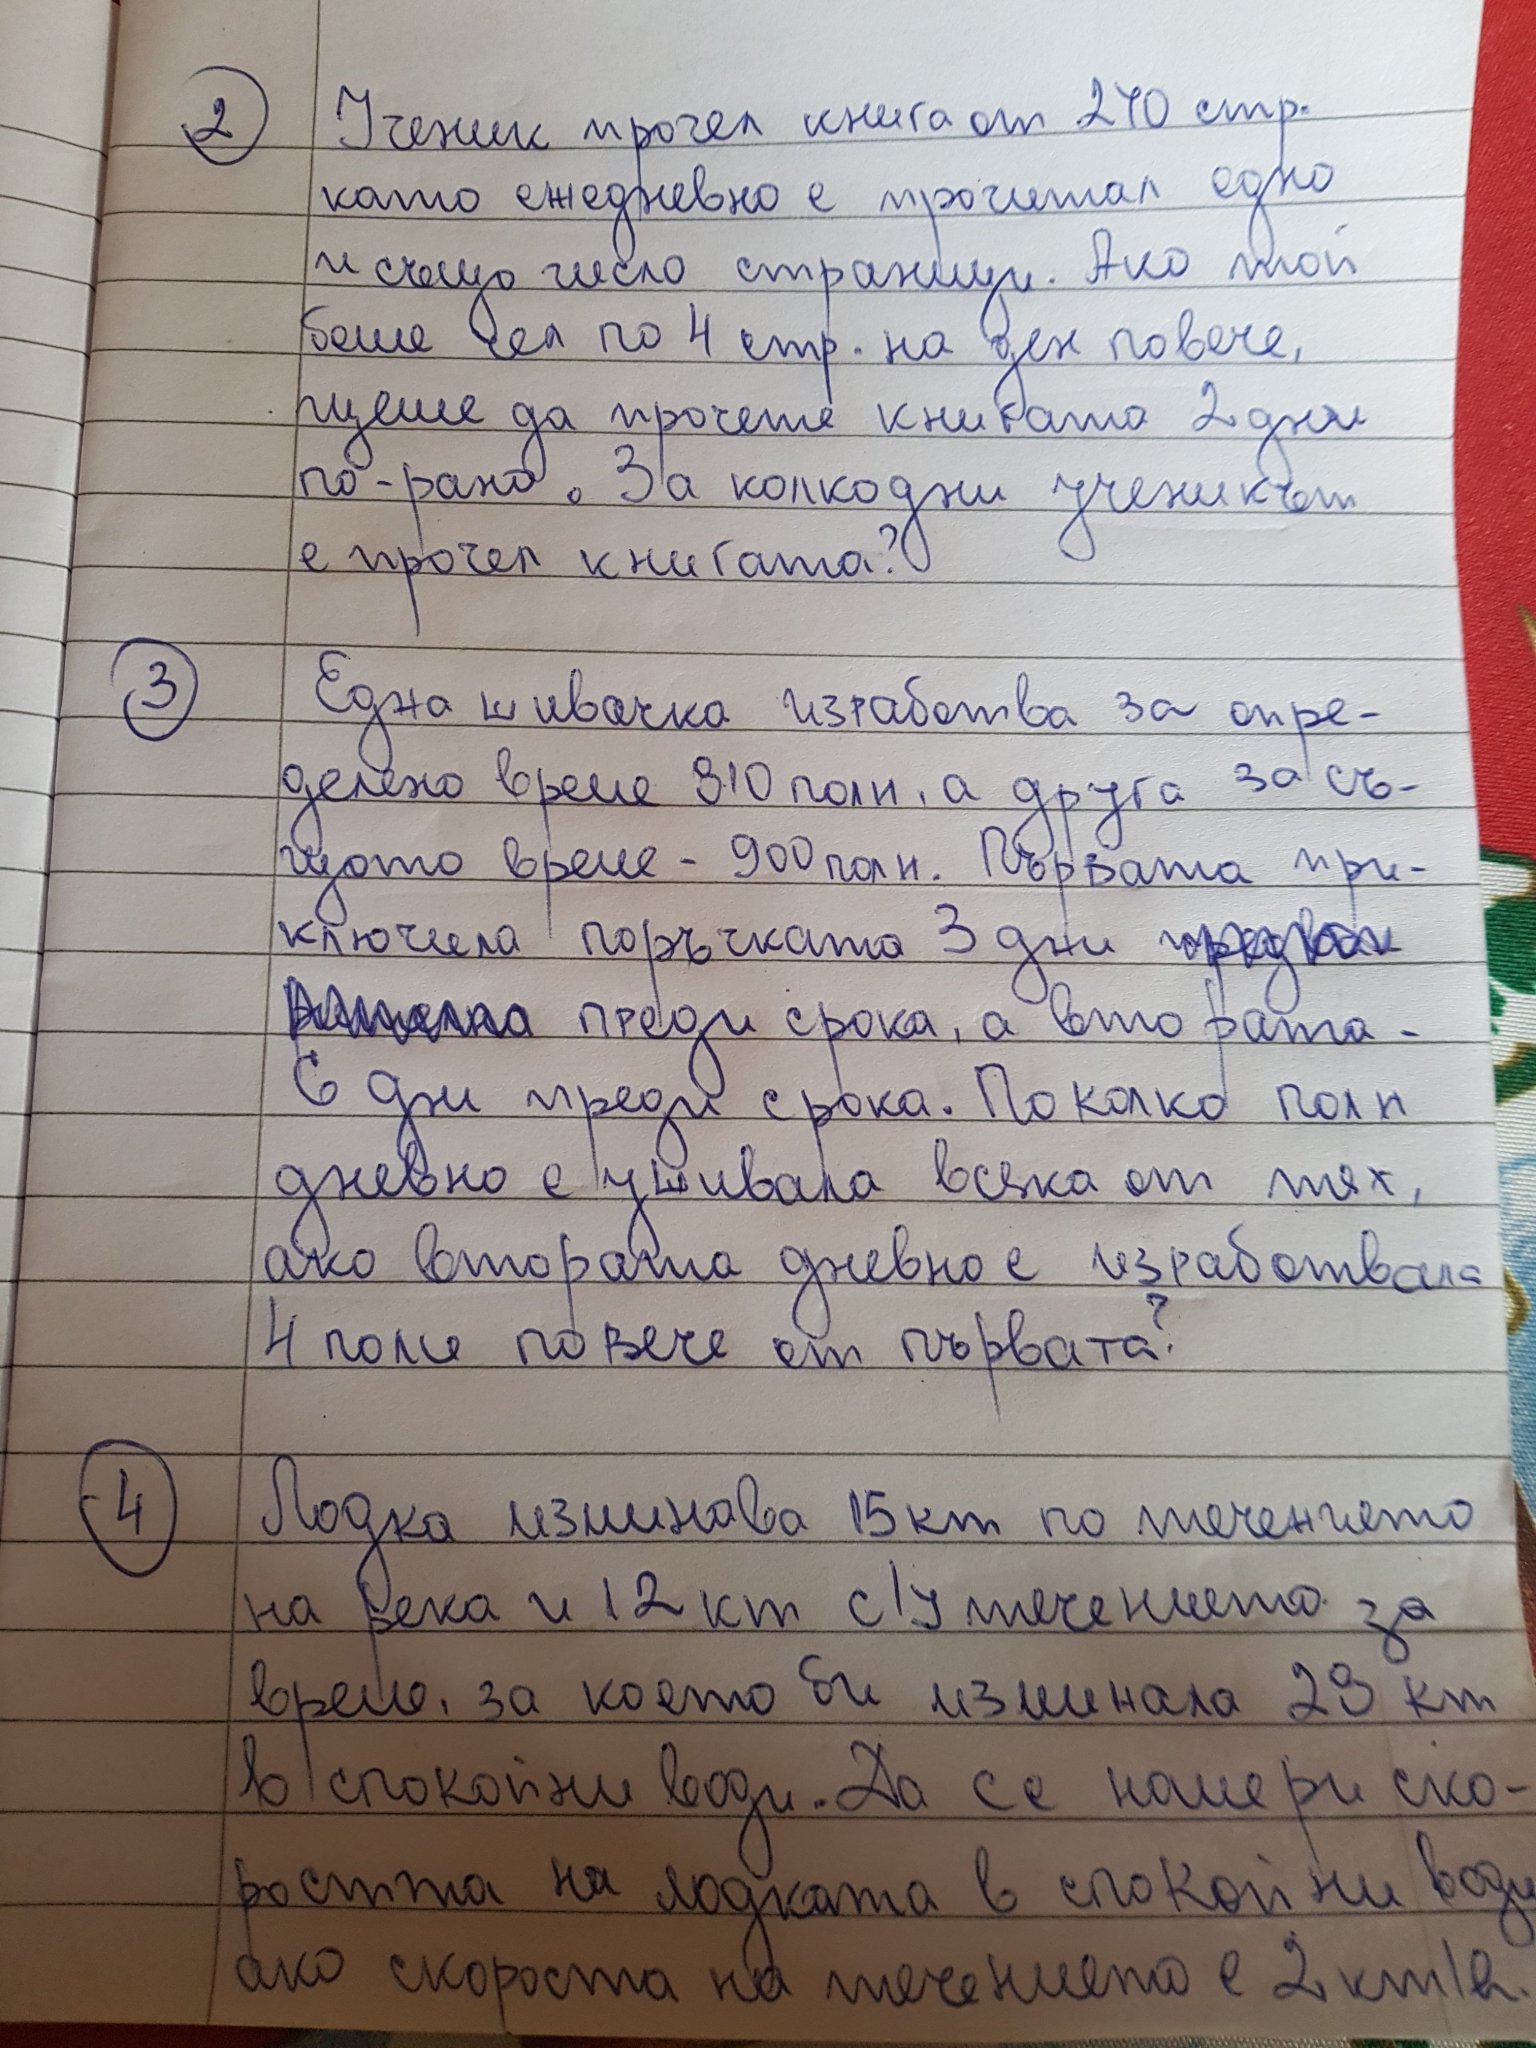 2 Ученик прочел книга от 240 стр.
като ежедневно е прочитал едно
и също число страници. Ако той
беше чел по 4 стр. на ден повече,
щеше да прочете книгата 2 дни
по-рано. За колко дни ученикът
е прочел книгата?
3 Една шивачка изработва за опре-
делено време 810 поли, а друга за съ-
щото време - 900 поли. Първата при-
ключила поръчката 3 дни
преди срока, а втората -
6 дни преди срока. По колко поли
дневно е ушивала всяка от тях,
ако втората дневно е изработвала
4 поли повече от първата?
4 Лодка изминава 15 km по течението
на река и 12 km с/у течението за
време, за което би изминала 29 km
в спокойни води. Да се намери ско-
ростта на лодката в спокойни води
ако скоростта на течението е 2 km/h.